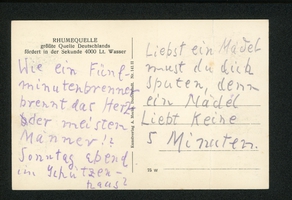 RHUMEQUELLE
größte Quelle Deutschlands
fördert in der Sekunde 4000 Lt. Wasser
Wie ein Fünf
minutenbrenner
brennt das Herz
der meisten
Männer!!
Sonntag abend
im Schützen-
haus?
Liebst ein Mädel
must du dich
sputen, denn
ein Mädel
Liebt Keine
5 Minuten.